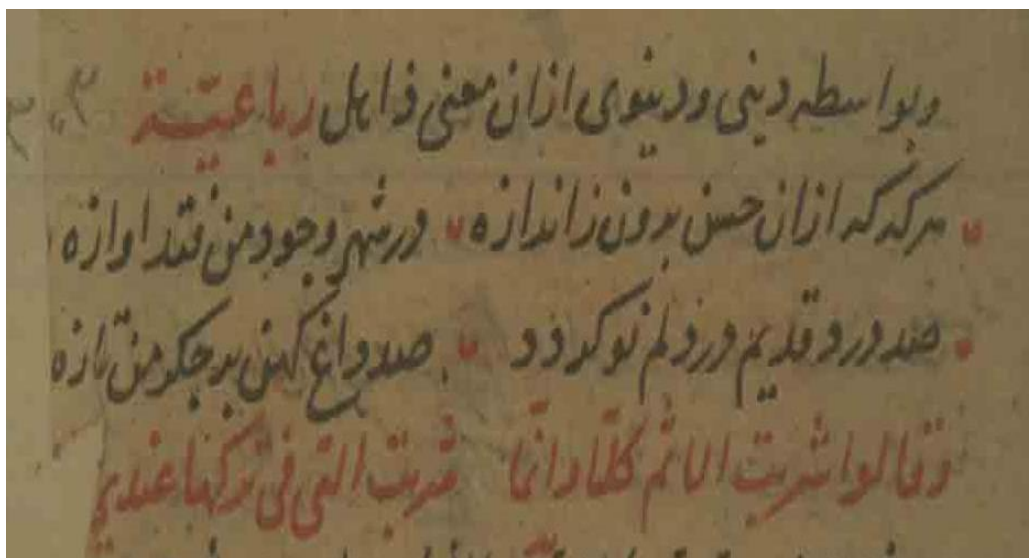 وبواسطه دینی و دنیوی ازان معنی ذاهل رباعیّة
هرکه که ازان حسن برون ز اندازه در شهر وجود من فتد اوازه
صد درد قدیم در دلم نو کردد صد داغ کهن بر جکر من تازه
وقالوا شربت الاثم کلّا وانّما شربت التی فی ترکها عندی